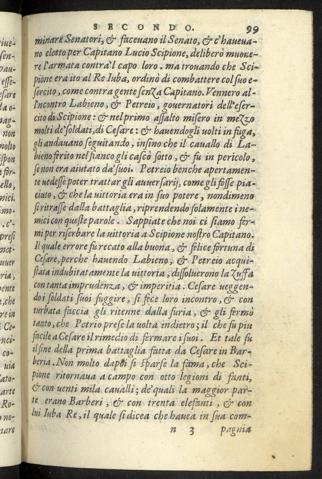 SECONDO. 99
minare Senatori, & facevano il Senato, & c'haueua-
no eletto per Capitano Lucio Scipione, deliberò muoue-
re l'armata contra'l capo loro. ma trouando che Sci-
pione era ito al Re Iuba, ordinò di combattere col suo e-
sercito, come contra gente senza Capitano. Vennero al-
l'incontro Labieno, & Petreio, governatori dell'eser-
cito di Scipione: & nel primo assalto misero in mezzo
molti de' soldati, di Cesare: & hauendogli uolti in fuga,
gli andauano seguitando, insino che il cauallo di La-
bieno ferito nel fianco gli cascò sotto, & fu in pericolo,
se non era aiutato da' suoi. Petreio benche apertamen-
te uedesse poter trattar gli auuersarij, come gli fosse pia-
ciuto, & che la uittoria era in suo potere, nondimeno
si ritrasse dalla battaglia, riprendendo solamente i ne-
mici con queste parole. Sappiate che noi ci siamo fer-
mi per riserbare la uittoria a Scipione nostro Capitano.
Il quale errore fu recato alla buona, & felice fortuna di
Cesare, perche hauendo Labieno, & Petreio acqui-
stata indubitatamente la uittoria, dissoluerono la zuffa
con tanta imprudenza, & imperitia. Cesare ueggen-
do i soldati suoi fuggire, si fece loro incontro, & con
turbata faccia gli ritenne dalla furia, & gli fermò
tanto, che Petrio prese la uolta indietro; il che fu piu
facile a Cesare il rimedio di fermare i suoi. Et tale fu
il fine della prima battaglia fatta da Cesare in Bar-
beria. Non molto dapoi si sparse la fama, che Sci-
pione ritornaua a campo con otto legioni di fanti,
& con uenti mila caualli; de' quali la maggior par-
te erano Barberi, & con trenta elefanti, & con
lui Iuba Re, il quale si dicea che hauea in sua com-
n 3 pagnia